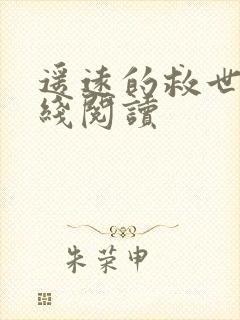 遥远的救世
綫閱讀
朱荣申